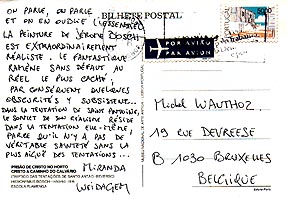 BILHETE POSTAL
ON PARLE, ON PARLE
ET ON EN OUBLIE L'ESSENTIEL
LA PEINTURE DE JÉRÔME BOSCH
EST EXTRAORDINAIREMENT
RÉALISTE. LE FANTASTIQUE
RAMÈNE SANS DÉFAUT AU
RÉEL LE PLUS CACHÉ,
PAR CONSÉQUENT QUELQUES
OBSCURITÉS Y SUBSISTENT...
DANS LA TENTATION DE SAINT ANTOINE,
LE SOMMET DE SON RÉALISME RÉSIDE
DANS LA TENTATION ELLE-MÊME,
PARCE QU'IL N'Y A PAS DE
VÉRITABLE SAINTETÉ SANS LA
PLUS AIGUË DES TENTATIONS...
MIRANDA
WEIDAGEM
PRISÃO DE CRISTO NO HORTO
CRISTO A CAMINHO DO CALVÁRIO
PARTIDAS DAS TENTAÇÕES DE SANTO ANTÃO (REVERSO)
HIERONYMUS BOSCH
ESCOLA FLAMENGA
POR AVIÃO
PAR AVION
PORTUGAL
Michel WAUTHOZ
19 RUE DEVREESE
B 1030 BRUXELLES
BELGIQUE